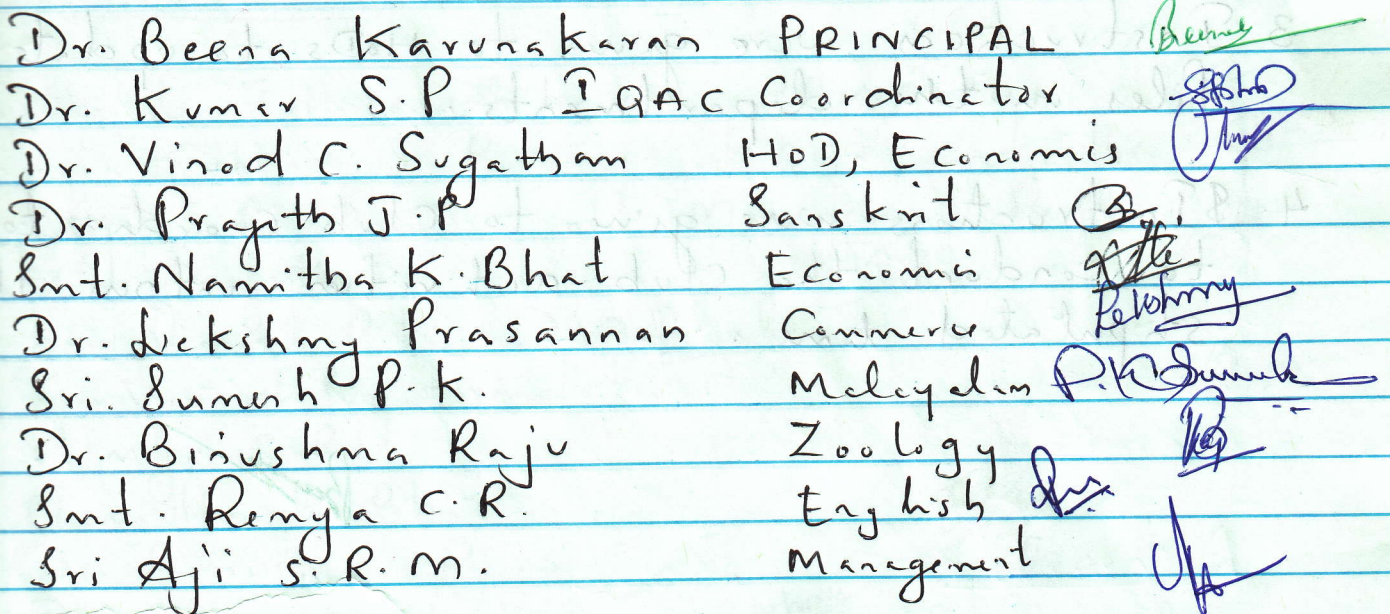 Dr. Beena Karunakaran PRINCIPAL
Dr. Kumar S.P IQAC Coordinator
Dr. Vinod C. Sugathan HoD, Economis
Dr. Prajith J.P Sanskrit
Smt. Namitha K. Bhat Economis
Dr. Lekshmy Prasannan Commerce Lekshmy
Sri. Sumesh P.K. Malayalam P.K Sumesh
Dr. Binushma Raju Zoology
Smt. Renya C.R. English
Sri Aji S.R.M. Management